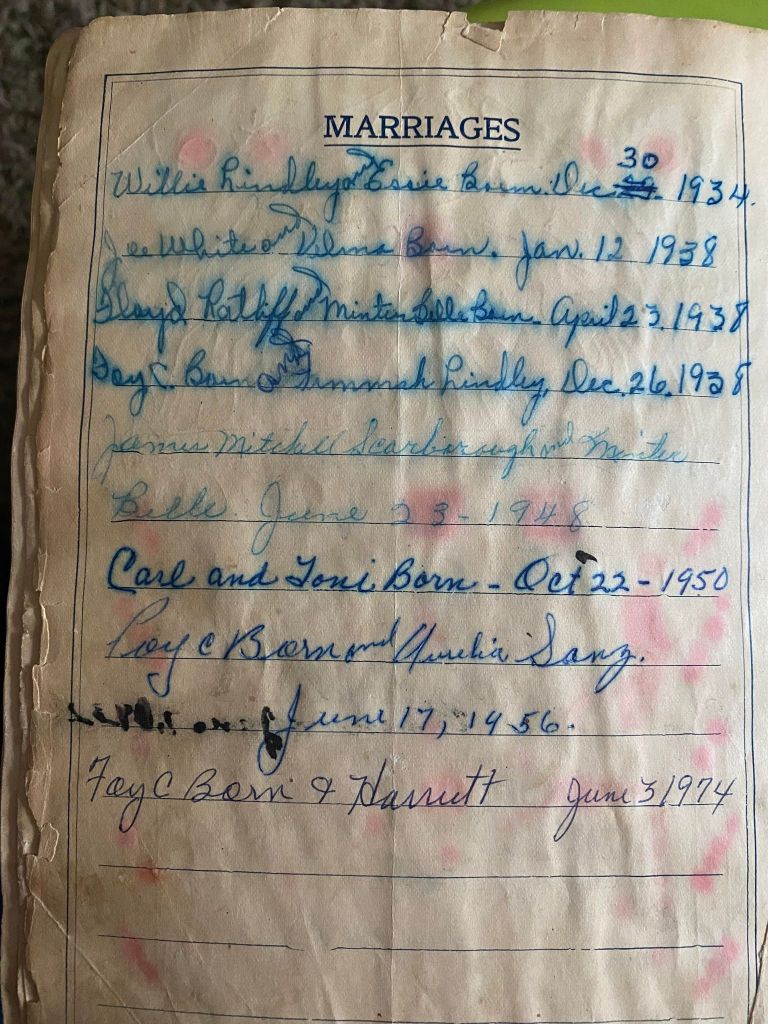 MARRIAGES
30
Willie Lindley and Essie Born. Dec. 1934.
Joe White and Velma Born. Jan. 12 1938
Floyd Ratliff and Minter Belle Born - April 23, 1938
Foy C. Born and Lindley, Dec. 26, 1938
James Mitchell Scarborough and Minter
Belle. June 23 - 1948
Carl and Toni Born - Oct 22 - 1950
C Born and Aurelia Sanz.
June 17, 1956.
Foy C Born & Harriett June 3 1974